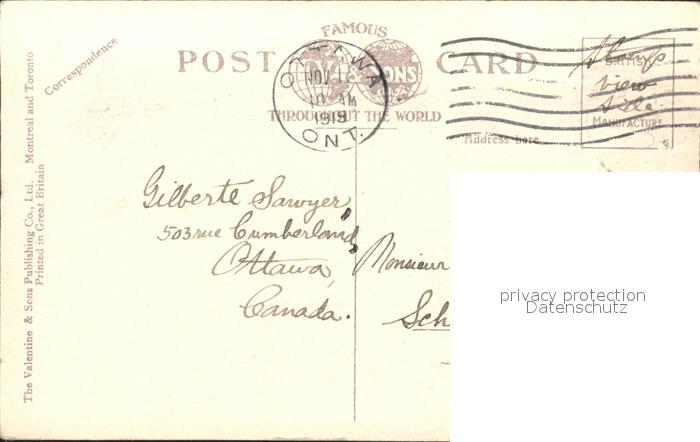 FAMOUS
POST CARD
V & SONS
THROUGHOUT THE WORLD
OTTAWA
NOV 1
10 AM
1919
ONT.
Stamp
view
side.
BRITISH
MANUFACTURE
Correspondence
Address here
The Valentine & Sons Publishing Co., Ltd. Montreal and Toronto
Printed in Great Britain
Gilberte Sawyer
503 rue Cumberland,
Ottawa,
Canada.
Monsieur
Sch
privacy protection
Datenschutz